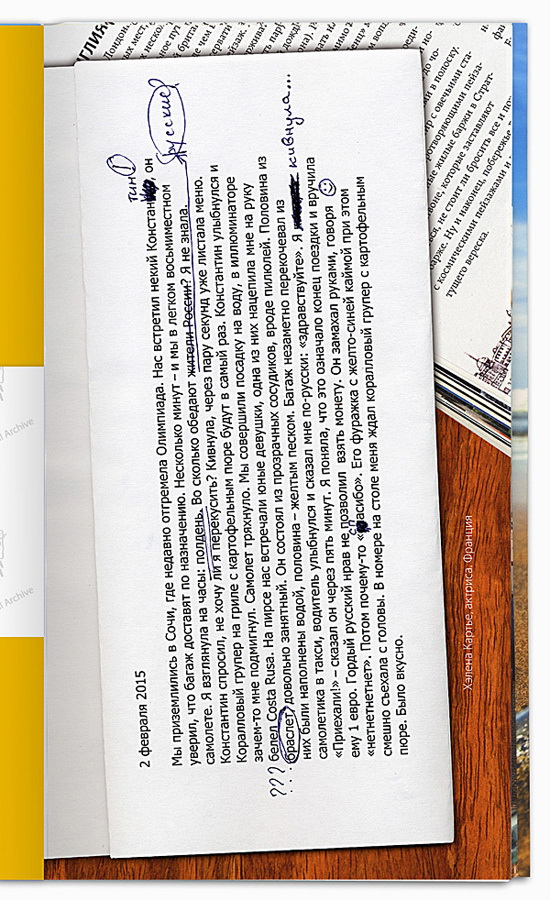 2 февраля 2015
тин
русские
Мы приземлились в Сочи, где недавно отгремела Олимпиада. Нас встретил некий Констан, он
уверил, что багаж доставят по назначению. Несколько минут – и мы в легком восьмиместном
самолете. Я взглянула на часы: полдень. Во сколько обедают жители России? Я не знала.
Константин спросил, не хочу ли я перекусить? Кивнула, через пару секунд уже листала меню.
Коралловый групер на гриле с картофельным пюре будут в самый раз. Константин улыбнулся и
зачем-то мне подмигнул. Самолет тряхнуло. Мы совершили посадку на воду, в иллюминаторе
белел Costa Rusa. На пирсе нас встречали юные девушки, одна из них нацепила мне на руку
??? браслет, довольно занятный. Он состоял из прозрачных сосудиков, вроде пилюлей. Половина из
них были наполнены водой, половина – желтым песком. Багаж незаметно перекочевал из
самолетика в такси, водитель улыбнулся и сказал мне по-русски: «здравствуйте». Я кивнула...
«Приехали!» – сказал он через пять минут. Я поняла, что это означало конец поездки и вручила
ему 1 евро. Гордый русский нрав не позволил взять монету. Он замахал руками, говоря
«нетнетнетнет». Потом почему-то «спасибо». Его фуражка с желто-синей каймой при этом
смешно съехала с головы. В номере на столе меня ждал коралловый групер с картофельным
пюре. Было вкусно.
с овечьими ста-
ротворяющими пейза-
жилые баржи в Страт-
воне, которые заставляют
не стоит ли бросить все и
барже. Ну и наконец, побережье
с космическими пейзажами и
тущего вереска.
Хэлена Картье, актриса. Франция
Archive
Archive